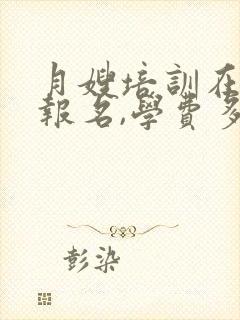 月嫂培訓在
報名,學費多
彭染